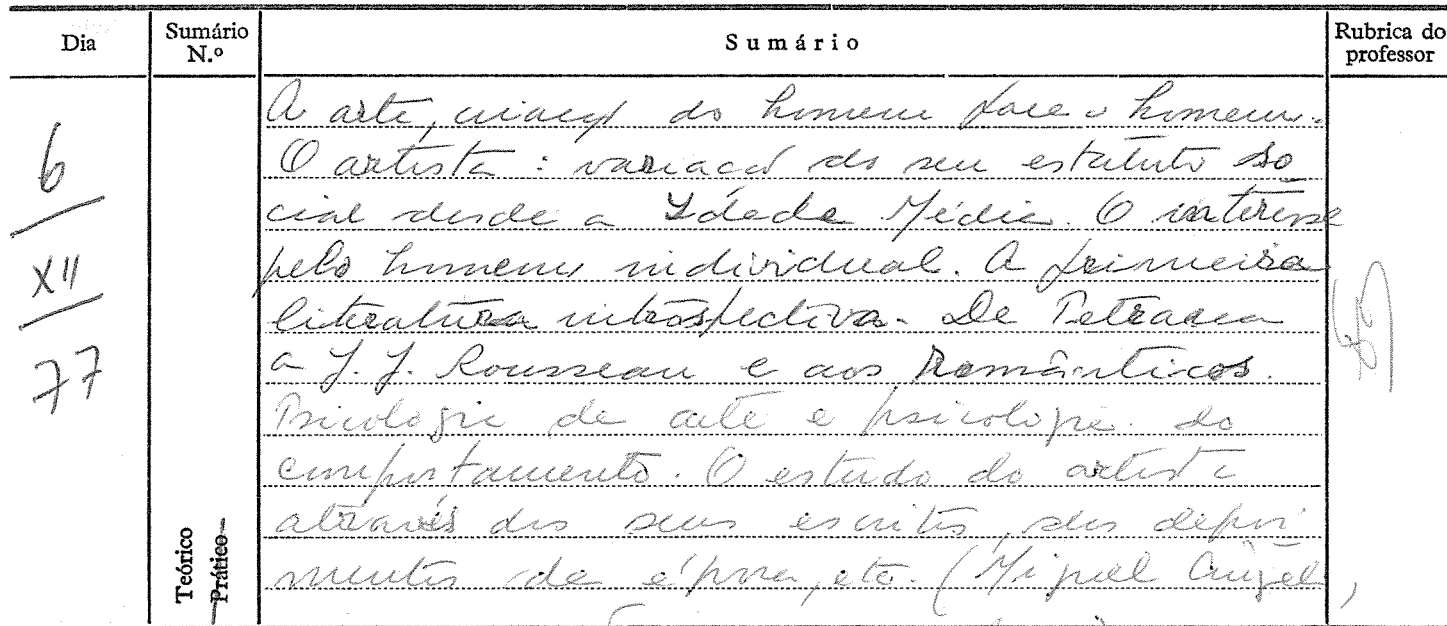 Dia
Sumário N.º
Sumário
Rubrica do professor
6
XII
77
Teórico
Prático
A arte, criação do homem face o homem.
O artista: variação do seu estatuto so
cial desde a Idade Média. O interesse
pelo homem individual. A primeira
literatura introspectiva. De Petrarca
a J. J. Rousseau e aos Românticos.
Psicologia da arte e psicologia do
comportamento. O estudo do artista
através dos seus escritos, dos depoi
mentos da época, etc. (Miguel Ângelo,